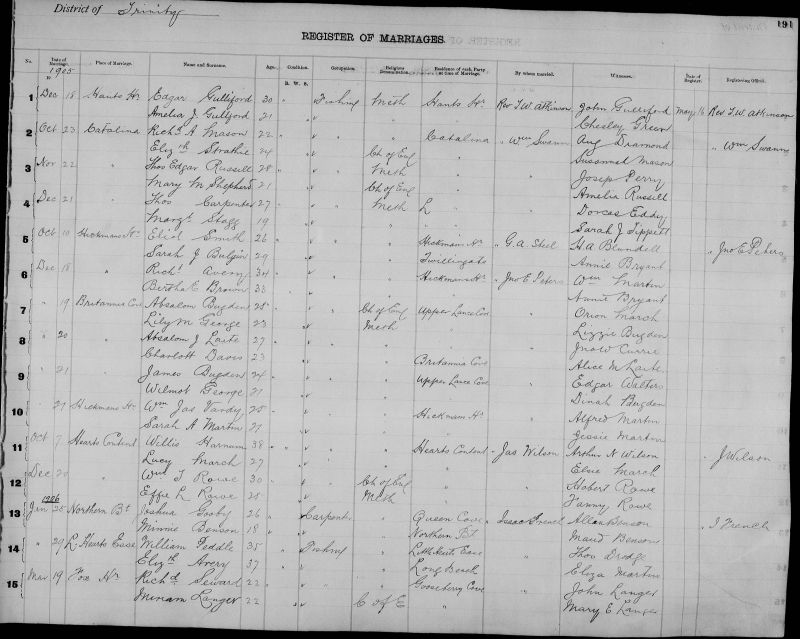 District of Trinity
191
REGISTER OF MARRIAGES.
No. Date of Marriage. Place of Marriage. Name and Surname. Age. Condition. Occupation. Religious Denomination. Residence of each Party at time of Marriage. By whom married. Witnesses. Date of Register. Registering Officer.
1905 B. W. S.
1 Dec 18 Hants Hr Edgar Gulliford 30 " Fishing Meth Hants Hr Rev T.W. Atkinson John Gulliford May 16 Rev T.W. Atkinson
Amelia J Gulliford 21 " " Chesley Green
2 Oct 23 Catalina Richd A Mason 22 " " " Catalina " Wm Swann Aug Diamond " Wm Swann
Elizth Strathie 24 " Susannah Mason
3 Nov 22 " Thos Edgar Russell 28 " " Ch of Eng " " Josep Perry
Mary M Shepherd 21 " Meth " Amelia Russell
4 Dec 21 " Thos Carpenter 27 " " Ch of Eng " " Dorcas Eddy
Margt Stagg 19 " Meth Sarah J Tippett
5 Oct 10 Hickmans Hr Eliol Smith 26 " " " Hickmam Hr " G.A. Steel H A Blundell " Jno E Peters
Sarah J Bulgin 29 " " Twillingate Annie Bryant
6 Dec 18 " Richd Avery 34 " " " Hickmans Hr " Jno E Peters Wm Martin
Bertha E Brown 33 " " " Annie Bryant
7 " 19 Britannia Cove Absalom Bugden 25 " " Ch of Eng Upper Lance Cov " Orion March
Lily M George 23 " Meth " Lizzie Bugden
8 " 20 " Absalom J Laite 27 " " " " " Jno W Currie
Charlott Davis 23 " " Britannia Cov Alice M Laite
9 " 21 " James Bugden 24 " " " Upper Lance Cove " Edgar Walters
Wilmot George 21 " " " Dinah Bugden
10 " 27 Hickmans Hr Wm Jas Vardy 25 " " " Hickmam Hr " Alfred Martin
Sarah A Martin 27 " " " Jessie Martin
11 Oct 7 Hearts Content Willis Harnum 38 " " " Hearts Content " Jas Wilson Arthur N Wilson " J Wilson
Lucy March 27 " " " Elsie March
12 Dec 20 " Wm T Rowe 30 " " Ch of Eng " " Hobert Rowe
Effie L Rowe 25 " Meth " Fanny Rowe
1906
13 Jan 25 Northern Bt Joshua Gooby 26 " Carpenter " Queen Cove " Isaac French Allan Benson " I French
Minnie Benson 18 " " Northern Bt Maud Benson
14 " 29 L. Hearts Ease William Peddle 35 " Fishing " Little Hearts Ease " Thos Drodge
Elizth Avery 37 " " Long Beach Eliza Martin
15 Mar 19 Fox Hr Richd Seward 22 " " " Gooseberry Cove " John Langer
Miriam Langer 22 " C of E " Mary E Langer